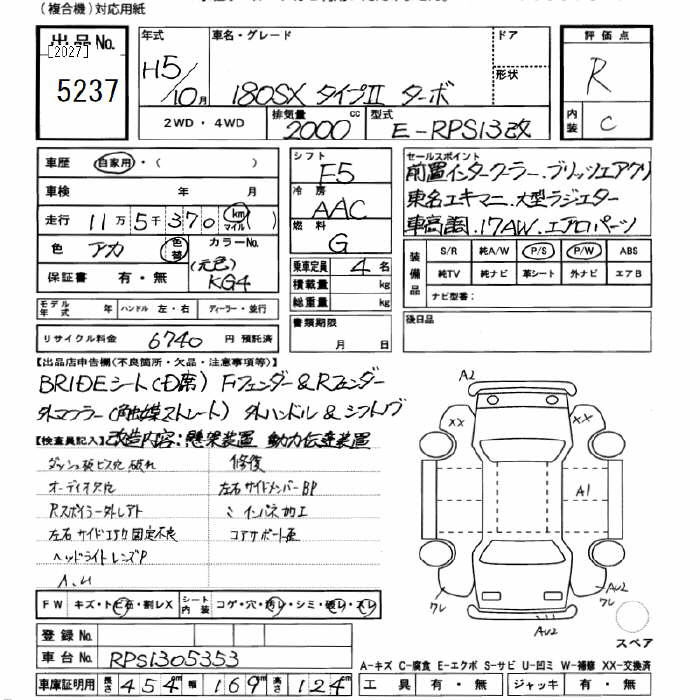 (複合機)対応用紙
出品No.
[2027]
5237
年式
H5/10月
車名・グレード
180SX タイプⅡ ターボ
ドア
形状
2WD・4WD
排気量
2000cc
型式
E-RPS13改
評価点
R
内装
C
車歴 自家用・( )
車検 年 月
走行 11万5千370 km マイル ( )
色 アカ 色替
カラーNo.
(元色)
KG4
保証書 有・無
モデル年式 年 ハンドル 左・右 ディーラー・並行
リサイクル料金 6740 円 預託済
シフト
F5
冷房
AAC
燃料
G
乗車定員 4 名
積載量 kg
総重量 kg
書類期限
月 日
セールスポイント
前置インタークーラー.ブリッツエアクリ
東名エキマニ.大型ラジエター
車高調.17AW.エアロパーツ
装備品
S/R 純A/W P/S P/W ABS
純TV 純ナビ 革シート 外ナビ エアB
ナビ型番:
後日品
【出品店申告欄(不良箇所・欠品・注意事項等)】
BRIDEシート(D席) Fフェンダー&Rフェンダー
外マフラー(触媒ストレート) 外ハンドル & シフトノブ
【検査員記入】改造内容:懸架装置 動力伝達装置
ダッシュ板ビス穴 破れ
オーディオ穴
Rスポイラー外しアト
左右 サイドエアロ 固定不良
ヘッドライトレンズP
A.U
修復
左右サイドメンバーBP
ミ インパネ加工
コアサポート歪
FW キズ・トビ石・割レX シート内装 コゲ・穴・汚レ・シミ・破レ・スレ
登録No.
車台No. RPS13053‌53
車庫証明用 長さ 454cm 幅 169cm 高さ 124cm
A2
XX
XX
A1
ワレ
ワレ
AU2
AU2
スペア
A-キズ C-腐食 E-エクボ S-サビ U-凹ミ W-補修 XX-交換済
工具 有・無 ジャッキ 有・無